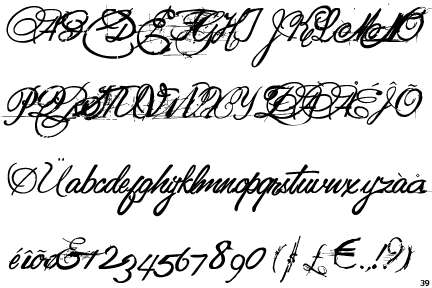 ABCDEFGHIJKLMNO
PQRSTUVWXYZÀÅÉÎÕ
ØÜabcdefghijklmnopqrstuvwxyzàå
éîõøü&1234567890($£€.,!?)
39